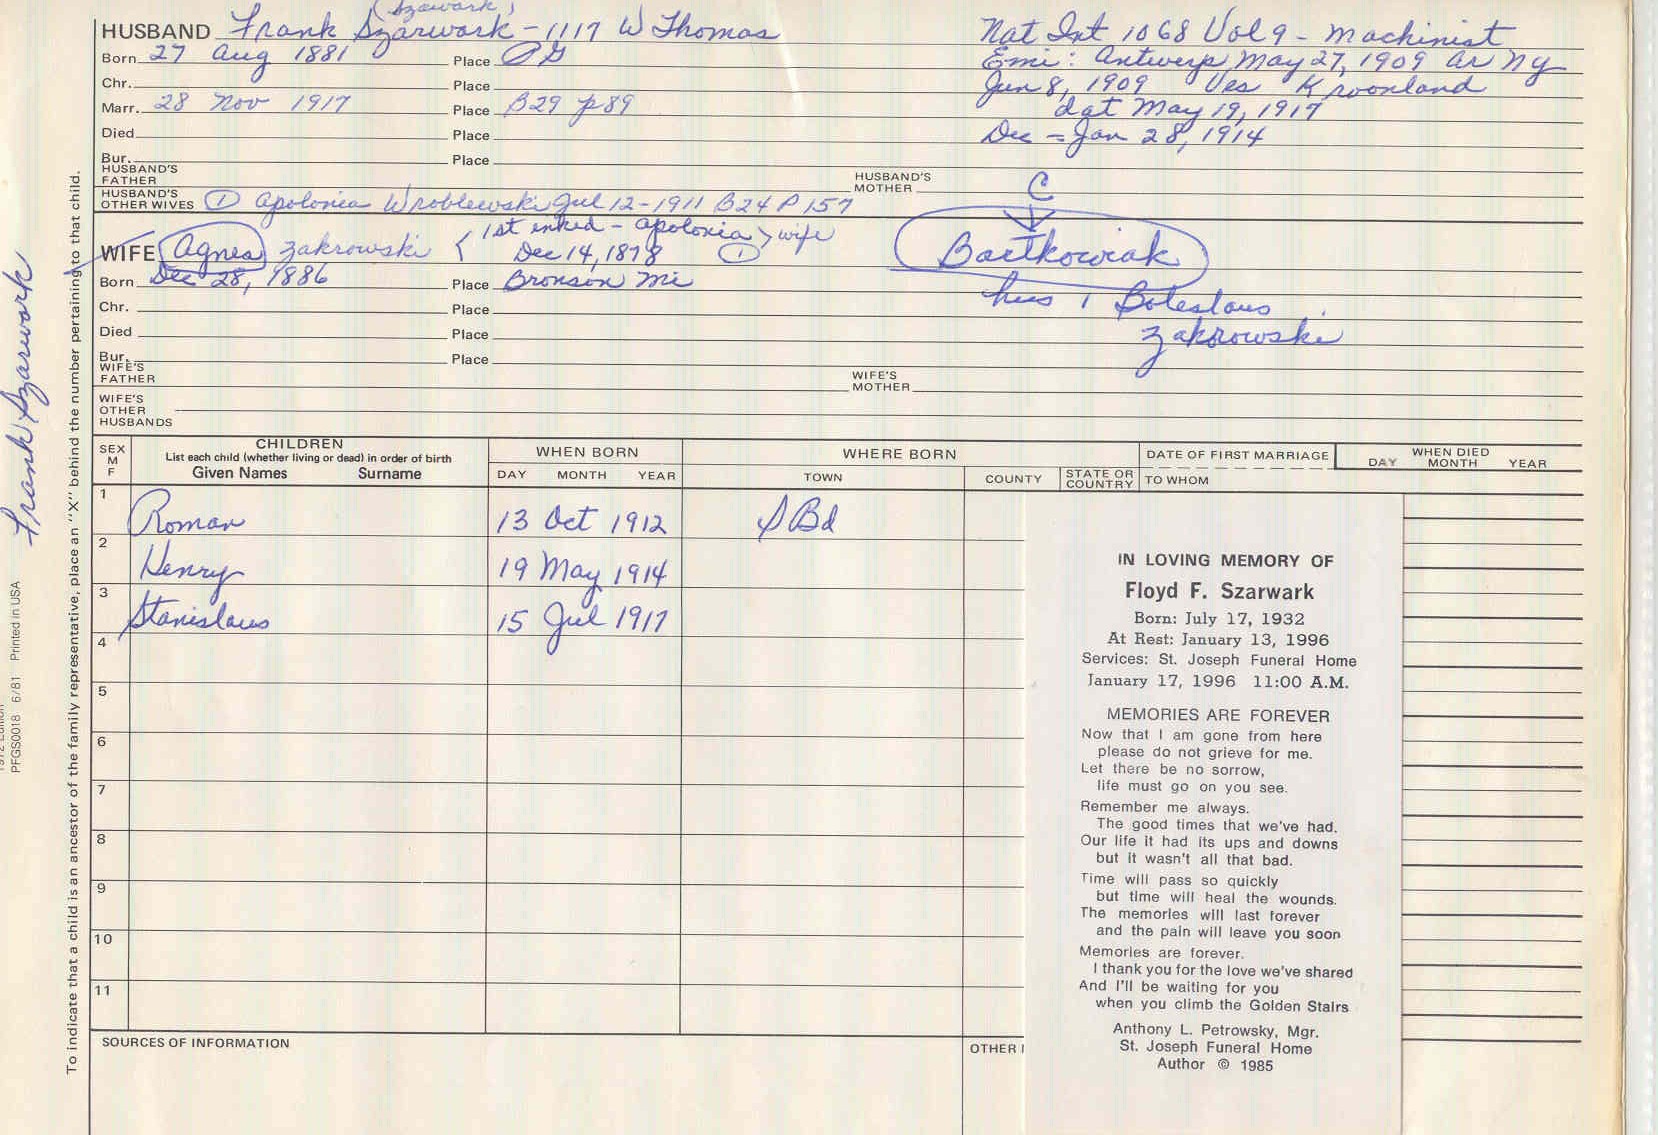 (Szawark)
HUSBAND Frank Szarwark - 1117 W Thomas
Nat Int 1068 Vol 9 - machinist
Born 27 Aug 1881 Place PG
Emi: Antwerp May 27, 1909 ar NY
Chr. Place
Jun 8, 1909 Ves Kroonland
Marr. 28 Nov 1917 Place B29 p89
dat May 19, 1917
Died Place
Dec = Jan 28, 1914
Bur. Place
HUSBAND'S FATHER HUSBAND'S MOTHER
HUSBAND'S OTHER WIVES ① Apolonia Wroblewski Jul 12-1911 B24 P 157
C
WIFE Agnes Zakrowski { 1st inked - apolonia > wife
Dec 14, 1878 ①
Bartkowiak
Born Dec 28, 1886 Place Bronson Mi
hus 1 Boleslaus
Zakrowski
Chr. Place
Died Place
Bur. Place
WIFE'S FATHER WIFE'S MOTHER
WIFE'S OTHER HUSBANDS
SEX M F
CHILDREN
List each child (whether living or dead) in order of birth
Given Names Surname
WHEN BORN
DAY MONTH YEAR
WHERE BORN
TOWN COUNTY STATE OR COUNTRY
DATE OF FIRST MARRIAGE
TO WHOM
WHEN DIED
DAY MONTH YEAR
1 Roman 13 Oct 1912 S Bd
2 Henry 19 May 1914
3 Stanislaus 15 Jul 1917
4
5
6
7
8
9
10
11
SOURCES OF INFORMATION
OTHER I
IN LOVING MEMORY OF
Floyd F. Szarwark
Born: July 17, 1932
At Rest: January 13, 1996
Services: St. Joseph Funeral Home
January 17, 1996 11:00 A.M.
MEMORIES ARE FOREVER
Now that I am gone from here
please do not grieve for me.
Let there be no sorrow,
life must go on you see.
Remember me always.
The good times that we've had.
Our life it had its ups and downs
but it wasn't all that bad.
Time will pass so quickly
but time will heal the wounds.
The memories will last forever
and the pain will leave you soon
Memories are forever.
I thank you for the love we've shared
And I'll be waiting for you
when you climb the Golden Stairs
Anthony L. Petrowsky, Mgr.
St. Joseph Funeral Home
Author © 1985
To indicate that a child is an ancestor of the family representative, place an "X" behind the number pertaining to that child.
Frank Szarwark
PFGS0018 6/81 Printed in USA